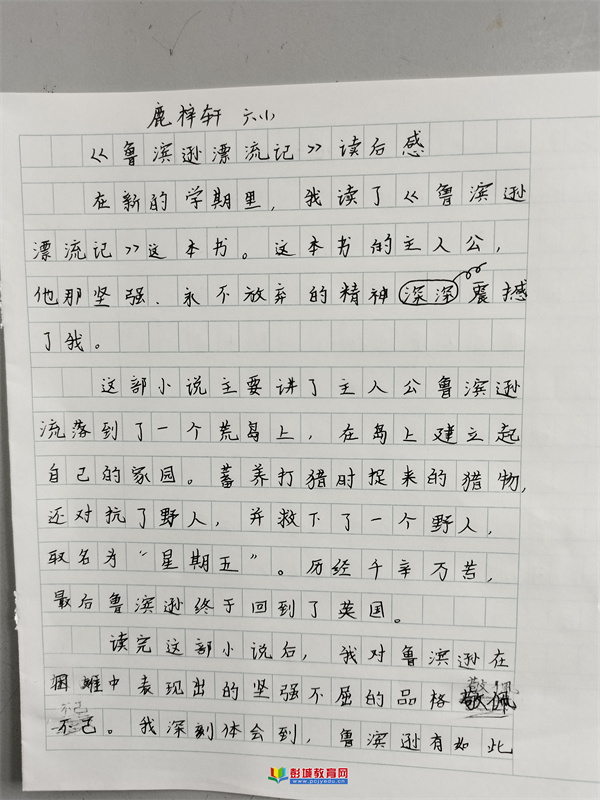 鹿梓轩 六小
《鲁滨逊漂流记》读后感
在新的学期里，我读了《鲁滨逊
漂流记》这本书。这本书的主人公，
他那坚强、永不放弃的精神深深震撼
了我。
这部小说主要讲了主人公鲁滨逊
流落到了一个荒岛上，在岛上建立起
自己的家园。蓄养打猎时捉来的猎物，
还对抗了野人，并救下了一个野人，
取名为“星期五”。历经千辛万苦，
最后鲁滨逊终于回到了英国。
读完这部小说后，我对鲁滨逊在
困难中表现出的坚强不屈的品格敬佩
不已。我深刻体会到，鲁滨逊有如此
彭城教育网
www.pcjyedu.cn